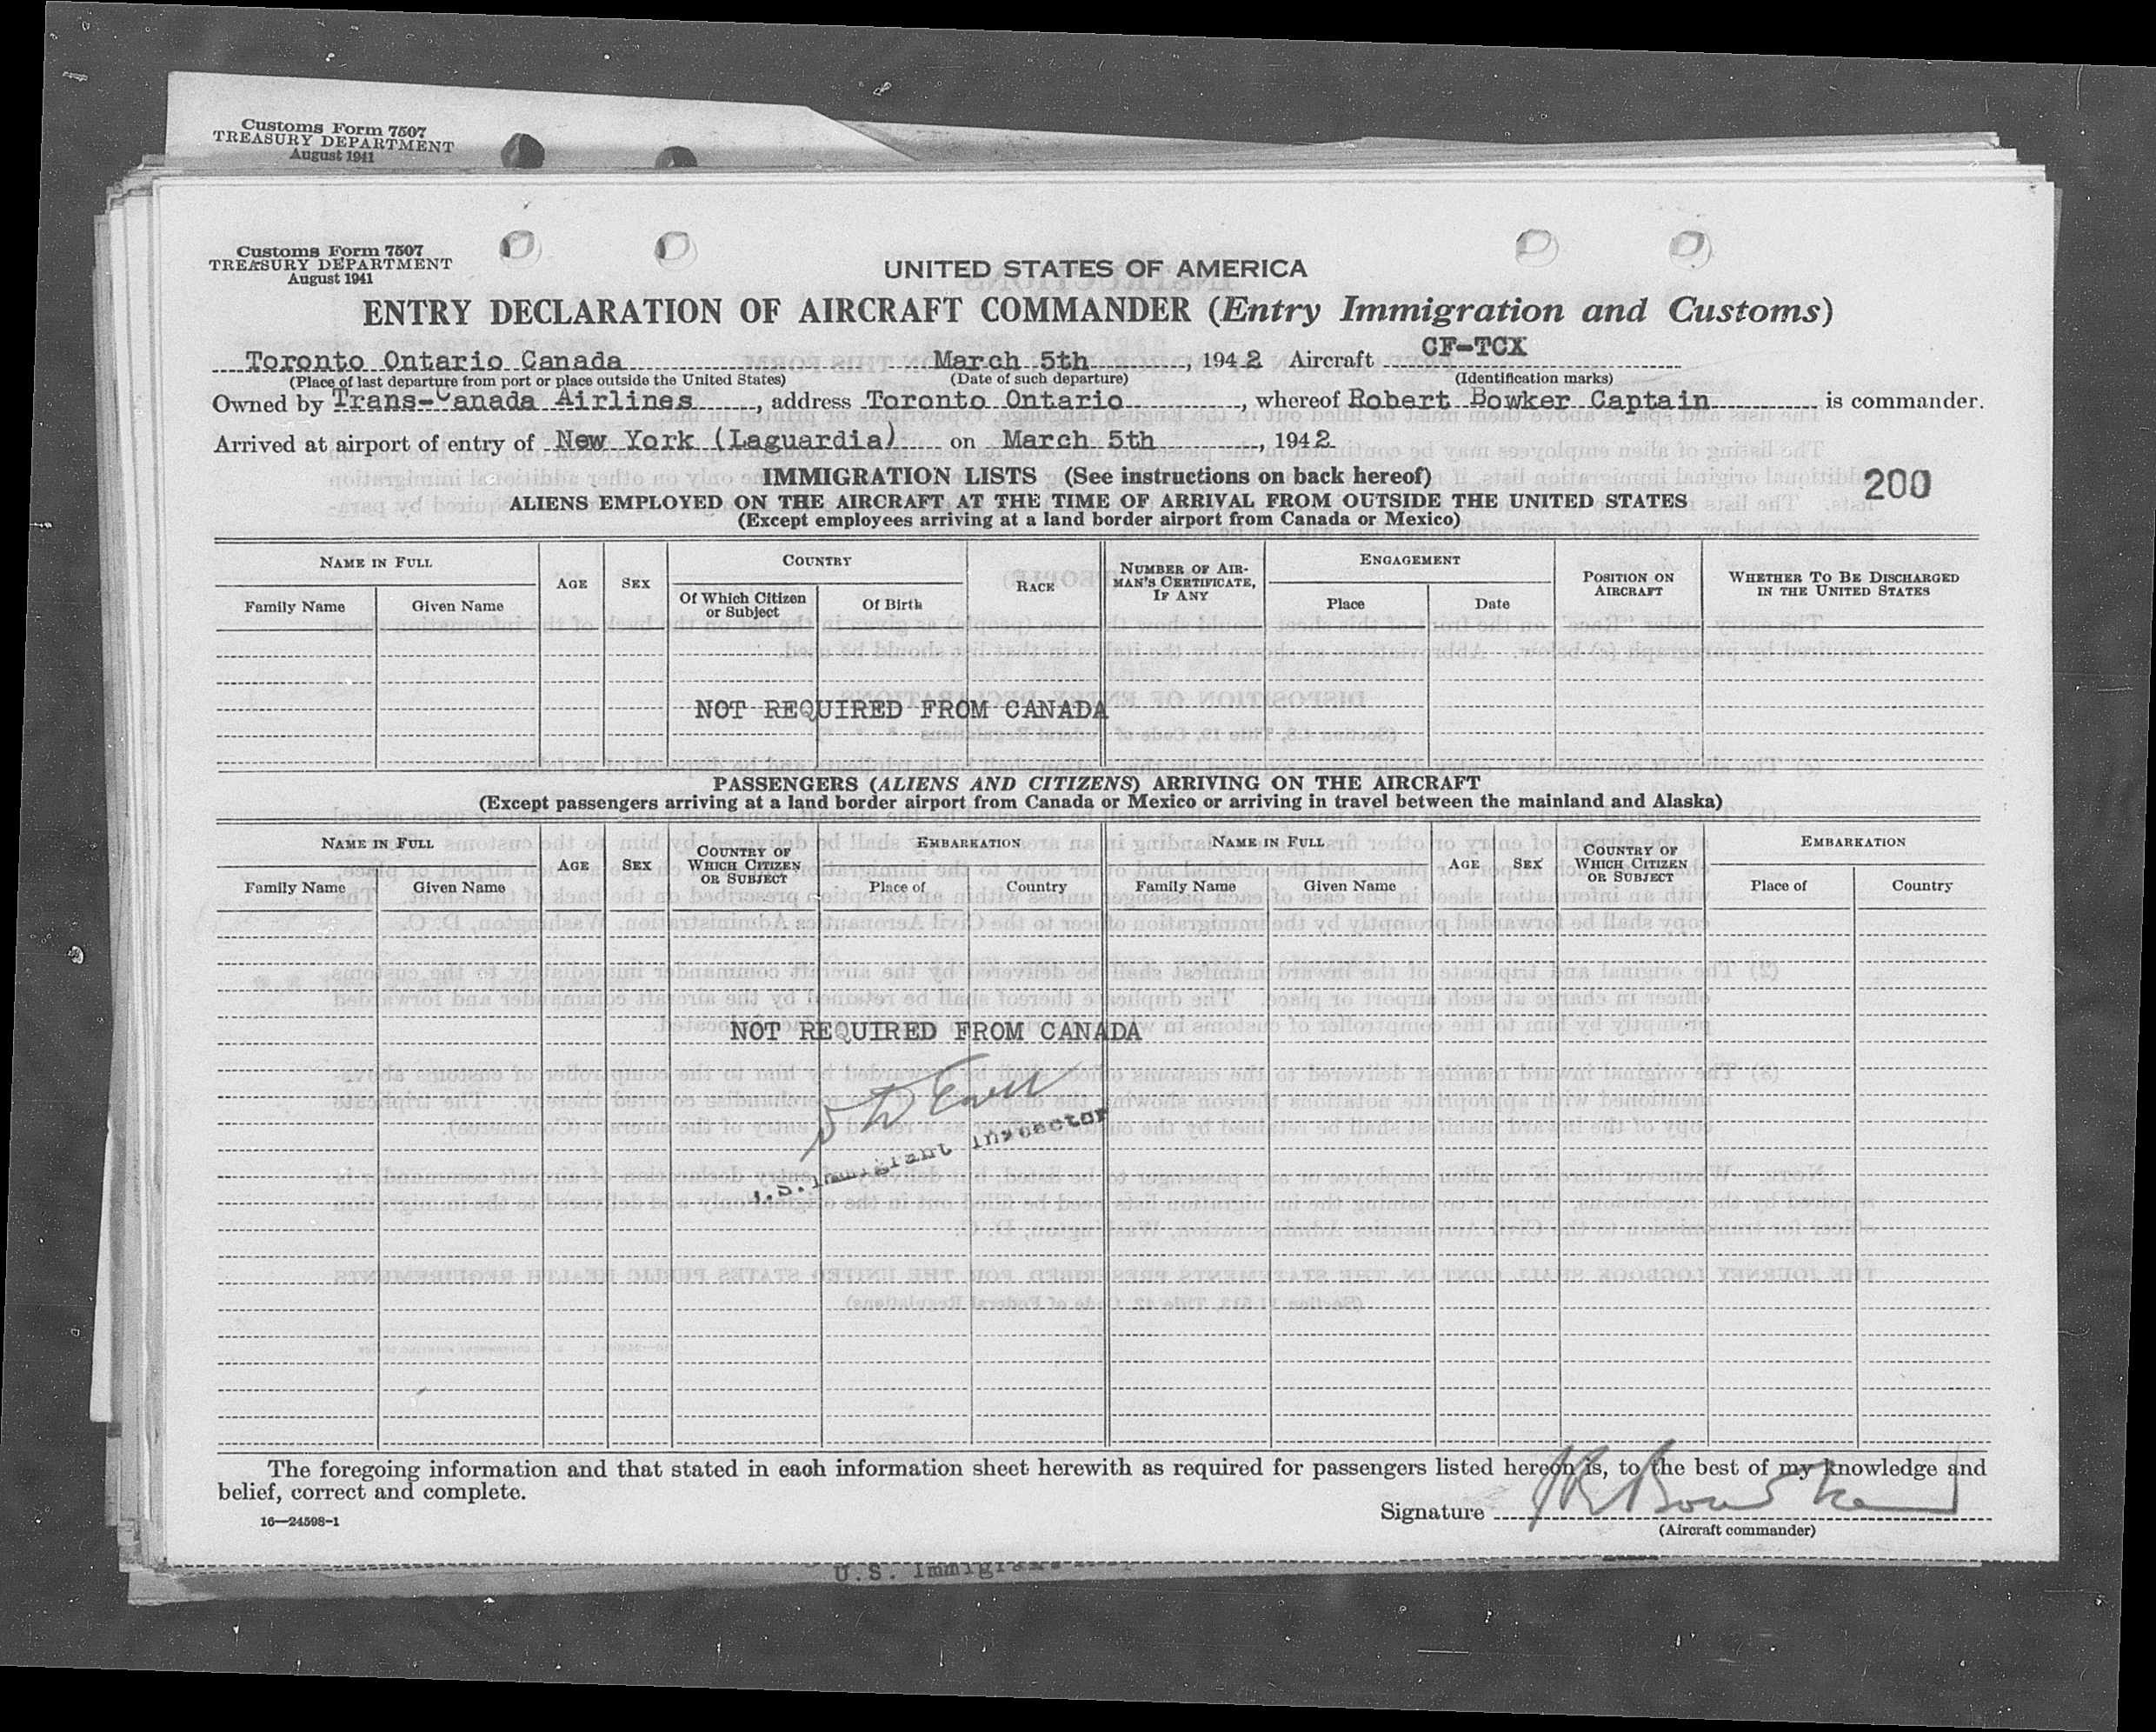 Customs Form 7507
TREASURY DEPARTMENT
August 1941
Customs Form 7507
TREASURY DEPARTMENT
August 1941
UNITED STATES OF AMERICA
ENTRY DECLARATION OF AIRCRAFT COMMANDER (Entry Immigration and Customs)
Toronto Ontario Canada March 5th, 1942 Aircraft CF-TCX
(Place of last departure from port or place outside the United States) (Date of such departure) (Identification marks)
Owned by Trans-Canada Airlines, address Toronto Ontario, whereof Robert Bowker Captain is commander.
Arrived at airport of entry of New York (Laguardia) on March 5th, 1942
IMMIGRATION LISTS (See instructions on back hereof)
200
ALIENS EMPLOYED ON THE AIRCRAFT AT THE TIME OF ARRIVAL FROM OUTSIDE THE UNITED STATES
(Except employees arriving at a land border airport from Canada or Mexico)
NAME IN FULL
Family Name Given Name
AGE
SEX
COUNTRY
Of Which Citizen or Subject
Of Birth
RACE
NUMBER OF AIR-
MAN'S CERTIFICATE,
IF ANY
ENGAGEMENT
Place Date
POSITION ON
AIRCRAFT
WHETHER TO BE DISCHARGED
IN THE UNITED STATES
NOT REQUIRED FROM CANADA
PASSENGERS (ALIENS AND CITIZENS) ARRIVING ON THE AIRCRAFT
(Except passengers arriving at a land border airport from Canada or Mexico or arriving in travel between the mainland and Alaska)
NAME IN FULL
Family Name Given Name
AGE
SEX
COUNTRY OF
WHICH CITIZEN
OR SUBJECT
EMBARKATION
Place of Country
NAME IN FULL
Family Name Given Name
AGE
SEX
COUNTRY OF
WHICH CITIZEN
OR SUBJECT
EMBARKATION
Place of Country
NOT REQUIRED FROM CANADA
U.S. Immigrant Inspector
The foregoing information and that stated in each information sheet herewith as required for passengers listed hereon is, to the best of my knowledge and
belief, correct and complete.
Signature R Bowker
(Aircraft commander)
16—24598-1
U.S. Immigrant